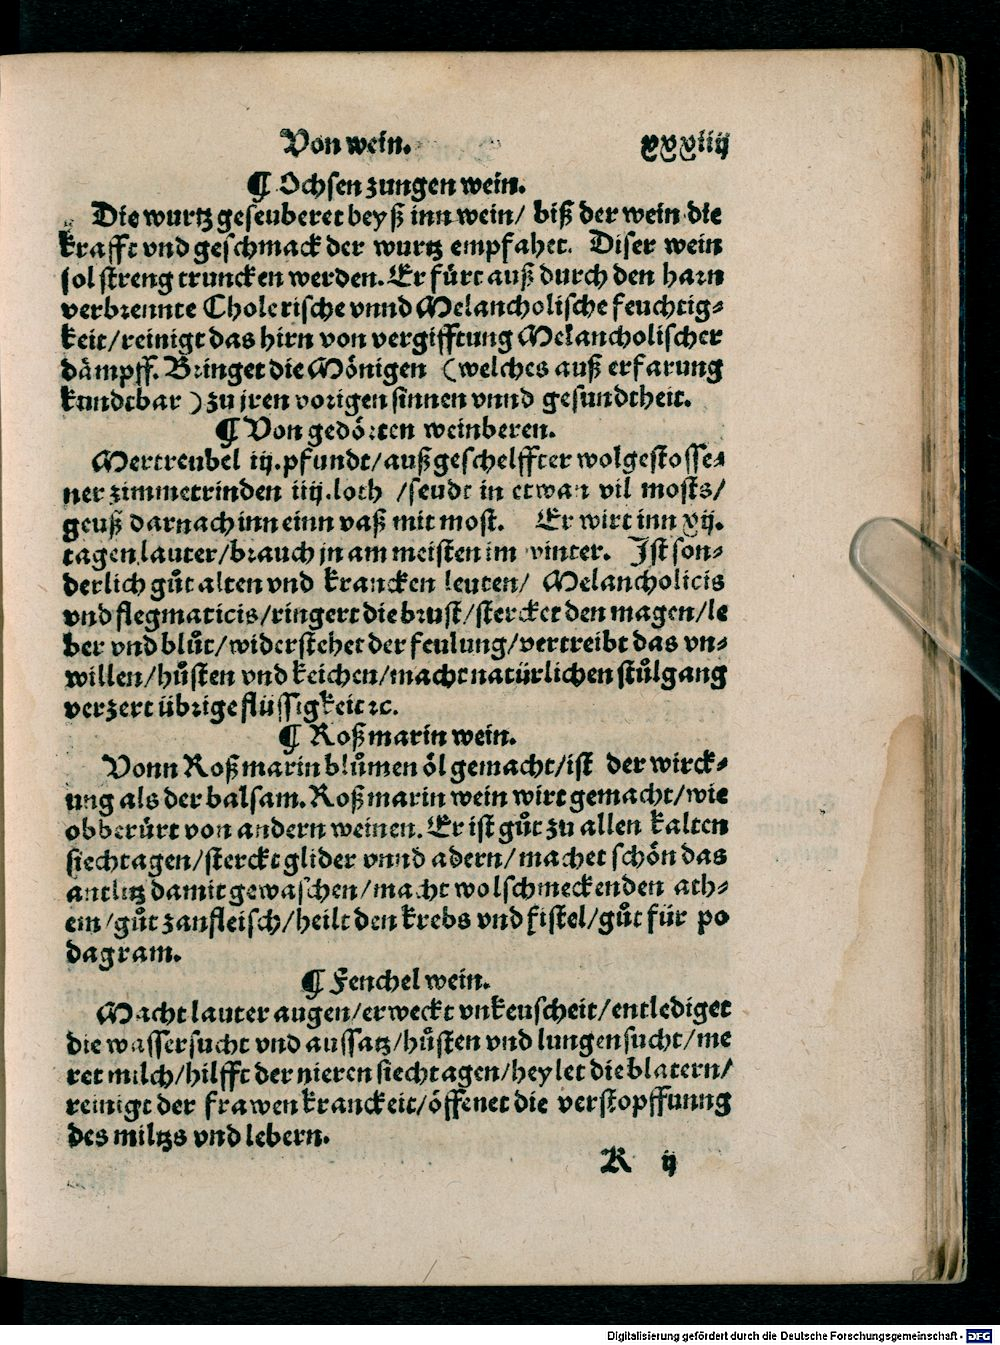 Von wein. xxxiij
¶ Ochsen zungen wein.
Die wurtz geseuberet beyß inn wein/ biß der wein die
krafft vnd geschmack der wurtz empfahet. Diser wein
sol streng truncken werden. Er fürt auß durch den harn
verbrennte Cholerische vnnd Melancholische feuchtig⸗
keit/reinigt das hirn von vergifftung Melancholischer
dämpff. Bringet die Mönigen (welches auß erfarung
kundtbar) zu jren vorigen sinnen vnnd gesundtheit.
¶ Von gedörten weinberen.
Mertreubel iij.pfundt/außgeschelffter wolgestosse⸗
ner zimmetrinden iiij.loth /seudt in etwan vil mosts/
geuß darnach inn einn vaß mit most. Er wirt inn xij.
tagen lauter/brauch jn am meisten im winter. Jst son⸗
derlich gůt alten vnd krancken leuten/ Melancholicis
vnd flegmaticis/ringert die brust/stercket den magen/le
ber vnd blůt/widerstehet der feulung/vertreibt das vn⸗
willen/hůsten vnd keichen/macht natürlichen stůlgang
verzert übrige flüssigkeit ꝛc.
¶ Roßmarin wein.
Vonn Roßmarin blůmen öl gemacht/ist der wirck⸗
ung als der balsam. Roßmarin wein wirt gemacht/wie
obberürt von andern weinen. Er ist gůt zu allen kalten
siechtagen/sterckt glider vnnd adern/machet schön das
antlitz damit gewaschen/macht wolschmeckenden ath⸗
em/gůt zanfleisch/heilt den krebs vnd fistel/gůt für po
dagram.
¶ Fenchel wein.
Macht lauter augen/erweckt vnkeuscheit/entlediget
die wassersucht vnd aussatz/hůsten vnd lungensucht/me
ret milch/hilfft der nieren siechtagen/heylet die blatern/
reinigt der frawen kranckeit/öffenet die verstopffunng
des miltzs vnd lebern.
K ij
Digitalisierung gefördert durch die Deutsche Forschungsgemeinschaft - DFG